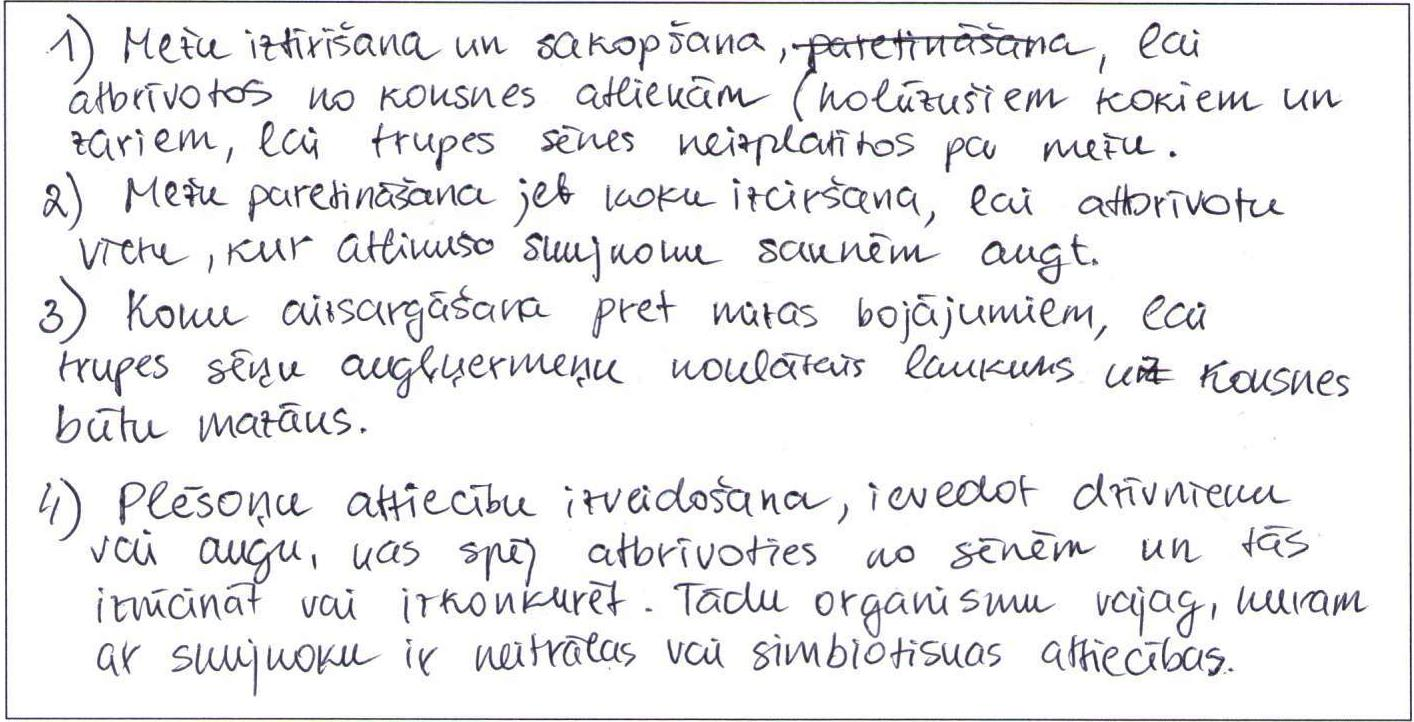 1) Mežu iztīrīšana un sakopšana, ~~paretināšana~~, lai
atbrīvotos no koksnes atliekām (nolūzušiem kokiem un
zariem, lai trupes sēnes neizplatītos pa mežu.
2) Mežu paretināšana jeb koku izciršana, lai atbrīvotu
vietu, kur attīrīušo skujkoku saknēm augt.
3) Koku aizsargāšana pret mizas bojājumiem, lai
trupes sēņu augļķermeņu noklātais laukums uz koksnes
būtu mazāks.
4) Plēsoņu attiecību izveidošana, ievedot dzīvnieku
vai augu, kas spēj atbrīvoties no sēnēm un tās
iznīcināt vai izkonkurēt. Tādu organismu vajag, kuram
ar skujkoku ir neitrālas vai simbiotiskas attiecības.